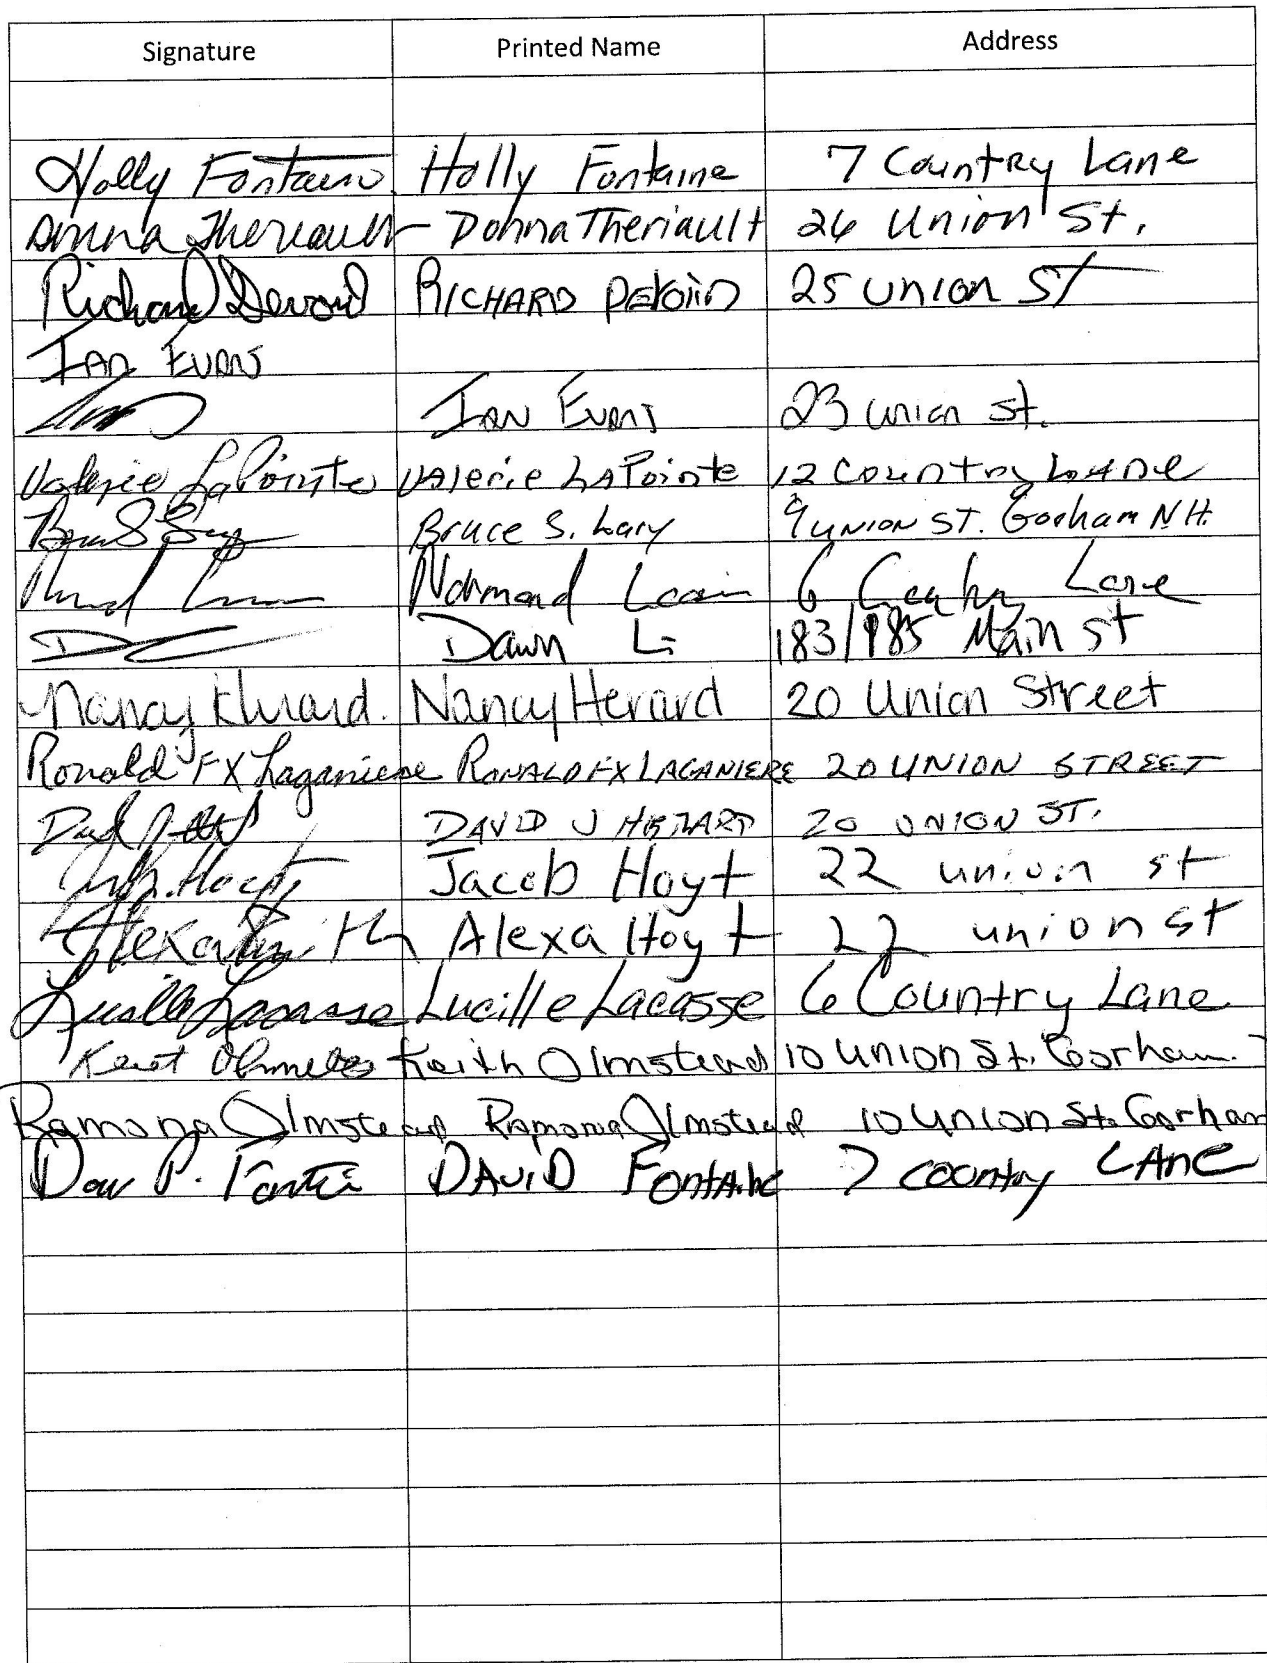 Signature Printed Name Address
Holly Fontaine Holly Fontaine 7 Country Lane
Donna Theriault - Donna Theriault 26 Union St.
Richard Devoid RICHARD DEVOID 25 UNION ST
IAN EVANS
IAN EVANS 23 union st.
Valerie LaPointe VAlerie LaPointe 12 Country LANE
Bruce S. Lary 9 UNION ST. Gorham N.H.
Normand 6 Country Lane
Dawn Li 183/185 Main st
Nancy Herard. Nancy Herard 20 Union Street
Ronald FX Laganiere RONALD FX LAGANIERE 20 UNION STREET
DAVID J 20 UNION ST.
Hoyt Jacob Hoyt 22 union st
Alexa Alexa Hoyt 22 union st
Lucille Lacasse Lucille Lacasse 6 Country Lane
Keith Olmstead 10 Union St. Gorham
Ramona Olmstead Ramona Olmstead 10 Union St. Gorham
P. DAVID FONTAINE 7 country LANE